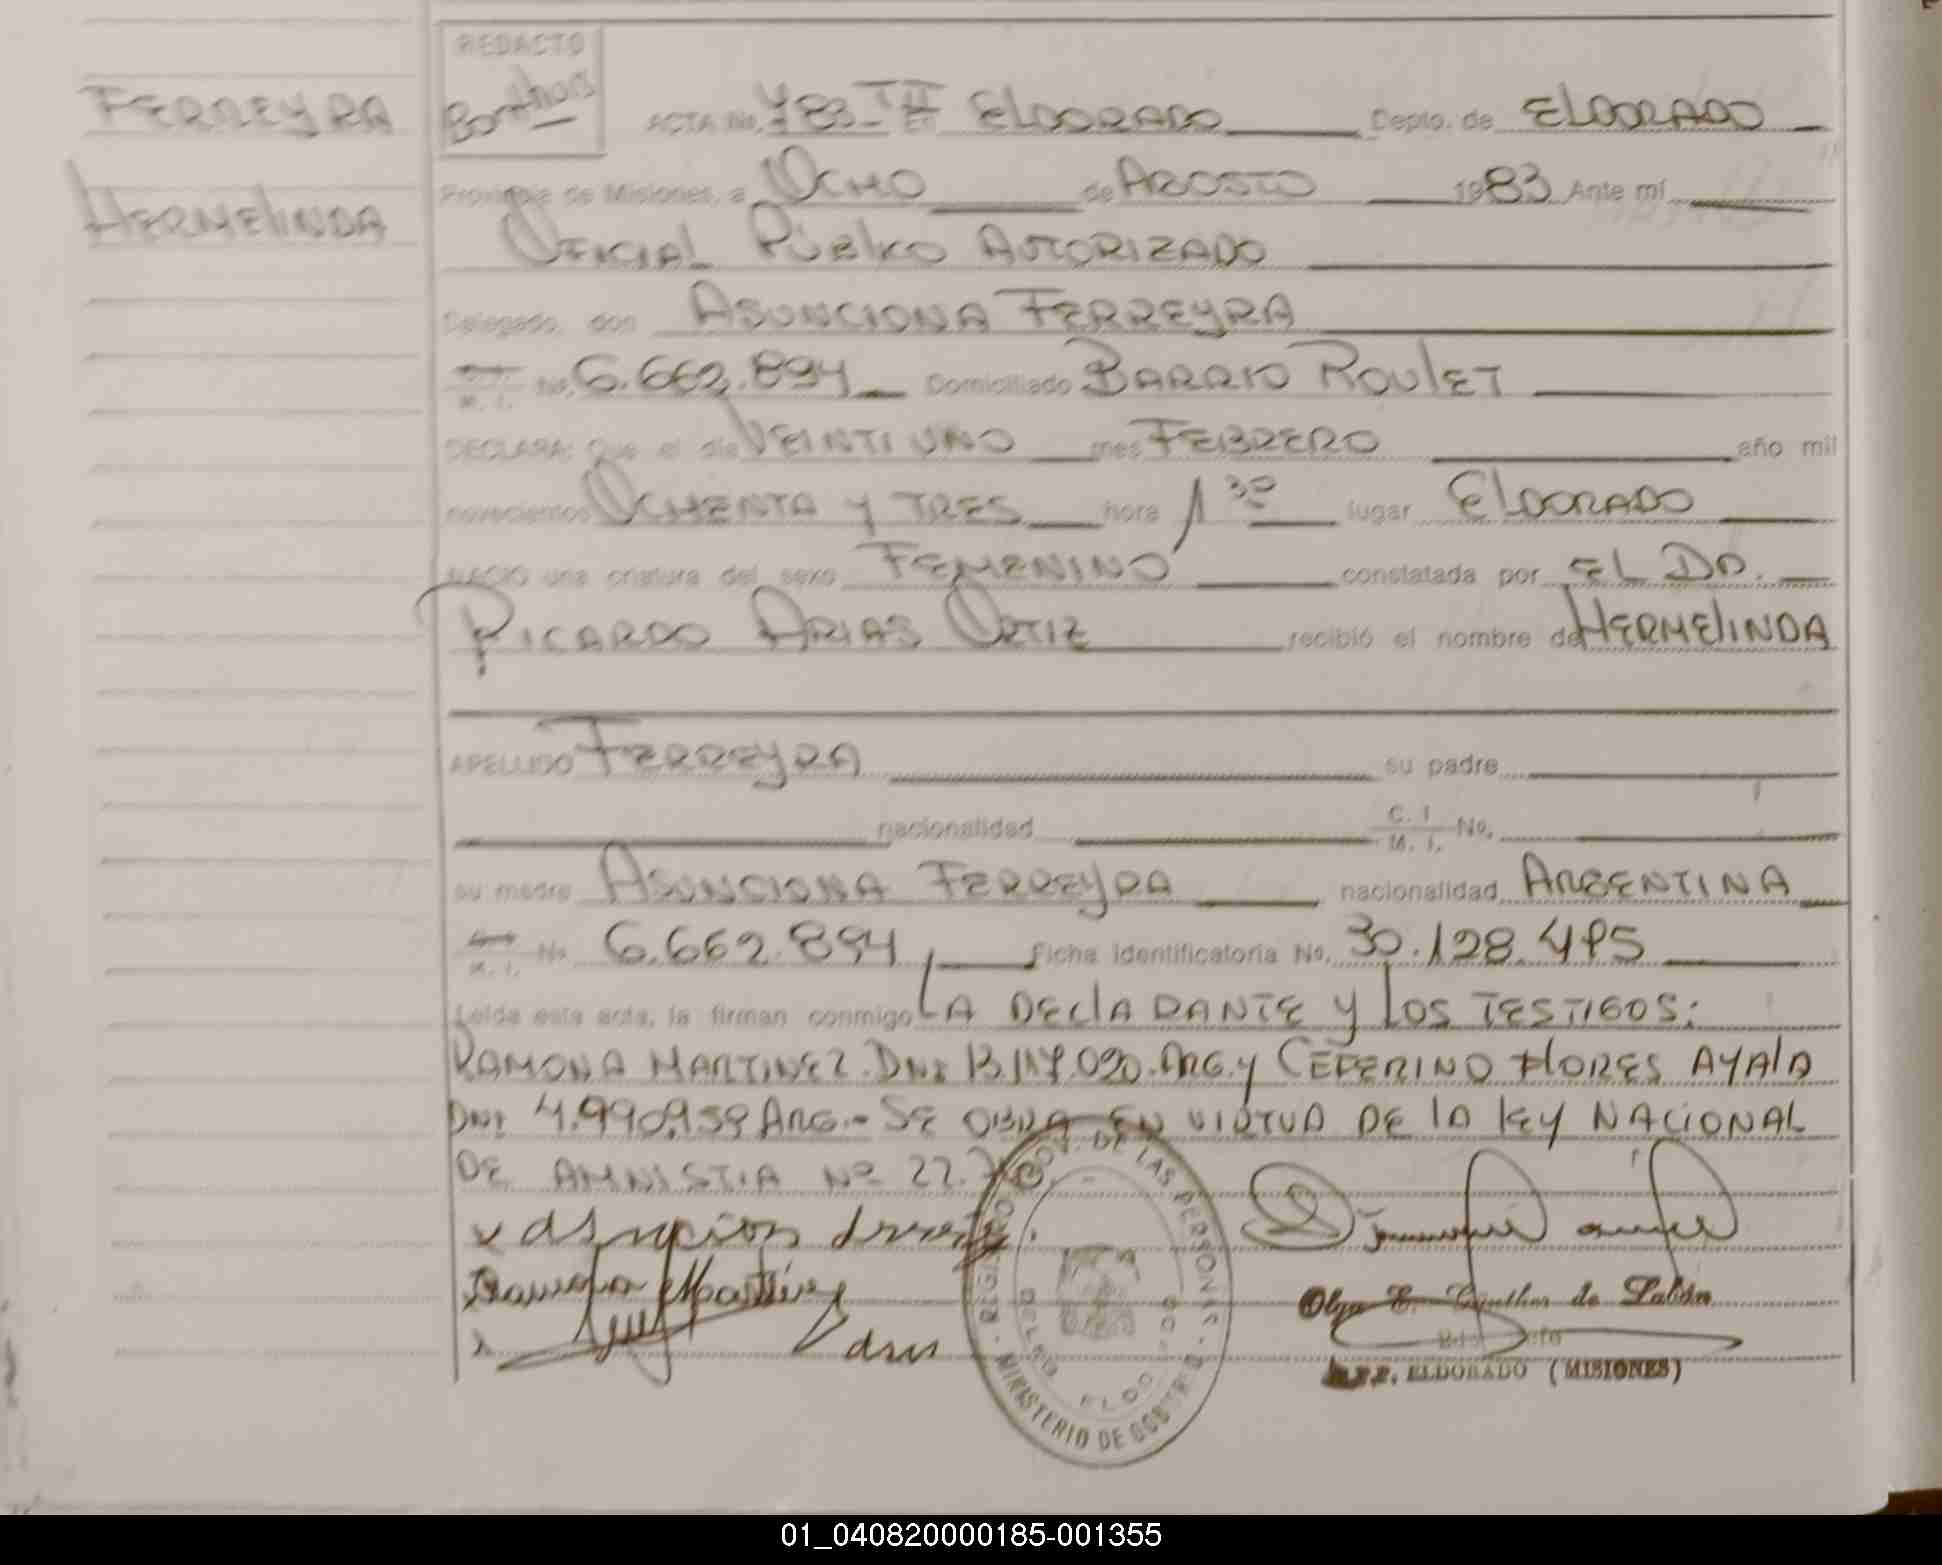 FERREYRA
HERMELINDA
REDACTO
ACTA No. 483 - T II En ELDORADO Depto. de ELDORADO
Provincia de Misiones, a OCHO de AGOSTO 1983 Ante mí
OFICIAL PÚBLICO AUTORIZADO
Delegado, don ASUNCIONA FERREYRA
M. I. No. 6.662.894 Domiciliado BARRIO ROULET
DECLARA: Que el día VEINTIUNO mes FEBRERO año mil
novecientos OCHENTA Y TRES hora 1 30 lugar ELDORADO
NACIO una criatura del sexo FEMENINO constatada por EL DR.
RICARDO ARIAS ORTIZ recibió el nombre de HERMELINDA
APELLIDO FERREYRA su padre
nacionalidad C. I. M. I. No.
su madre ASUNCIONA FERREYRA nacionalidad ARGENTINA
M. I. No 6.662.894 Ficha identificatoria No. 30.128.495
Leída esta acta, la firman conmigo LA DECLARANTE Y LOS TESTIGOS:
RAMONA MARTINEZ. DNI 13.117.090. ARG. Y CEFERINO FLORES AYALA
DNI 4.990.959 ARG.- SE OBRA EN VIRTUD DE LA LEY NACIONAL
DE AMNISTIA Nº 22.
Ramona Martinez
DE LAS PERSONAS
MINISTERIO DE GOBIERNO
Olga E. de
ELDORADO (MISIONES)
01_040820000185-001355